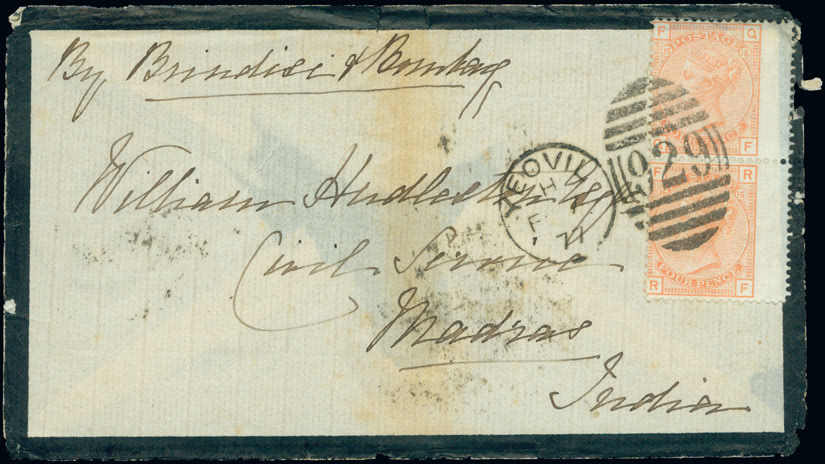 By Brindisi & Bombay
William Hudleston Esqr
Civil Service
Madras
India
YEOVIL
H
F
929
F Q
POSTAGE
15
F
F R
15
FOUR PENCE
R F